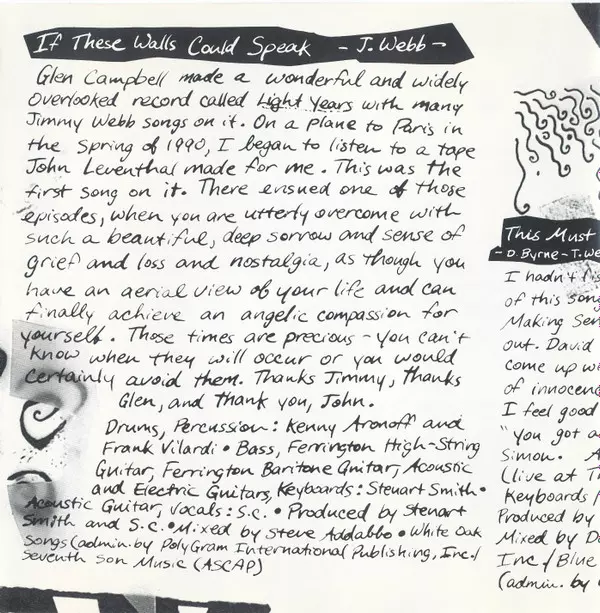 If These Walls Could Speak - J. Webb -
Glen Campbell made a wonderful and widely
overlooked record called Light Years with many
Jimmy Webb songs on it. On a plane to Paris in
the Spring of 1990, I began to listen to a tape
John Leventhal made for me. This was the
first song on it. There ensued one of those
episodes, when you are utterly overcome with
such a beautiful, deep sorrow and sense of
grief and loss and nostalgia, as though you
have an aerial view of your life and can
finally achieve an angelic compassion for
yourself. Those times are precious - you can't
know when they will occur or you would
certainly avoid them. Thanks Jimmy, thanks
Glen, and thank you, John.
Drums, Percussion: Kenny Aronoff and
Frank Vilardi • Bass, Ferrington High-String
Guitar, Ferrington Baritone Guitar, Acoustic
and Electric Guitars, Keyboards: Steuart Smith •
Acoustic Guitar, Vocals: S.C. • Produced by Steuart
Smith and S.C. • Mixed by Steve Addabbo • White Oak
Songs (admin. by PolyGram International Publishing, Inc./
Seventh Son Music (ASCAP)
This Must
- D. Byrne - T. We
I hadn't lis
of this song
Making Sen
out. David
come up wi
of innocenc
I feel good
"you got a
Simon. A
(live at T
Keyboards /
Produced by
Mixed by D
Inc / Blue
(admin. by